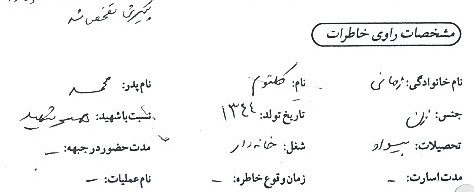 مشخصات راوی خاطرات
نام خانوادگی: نام: کلثوم نام پدر: محمد
جنس: زن تاریخ تولد: ۱۳۴۴ نسبت با شهید: همسر شهید
تحصیلات: بیسواد شغل: خانه‌دار مدت حضور در جبهه: -
مدت اسارت: - زمان وقوع خاطره: - نام عملیات: -